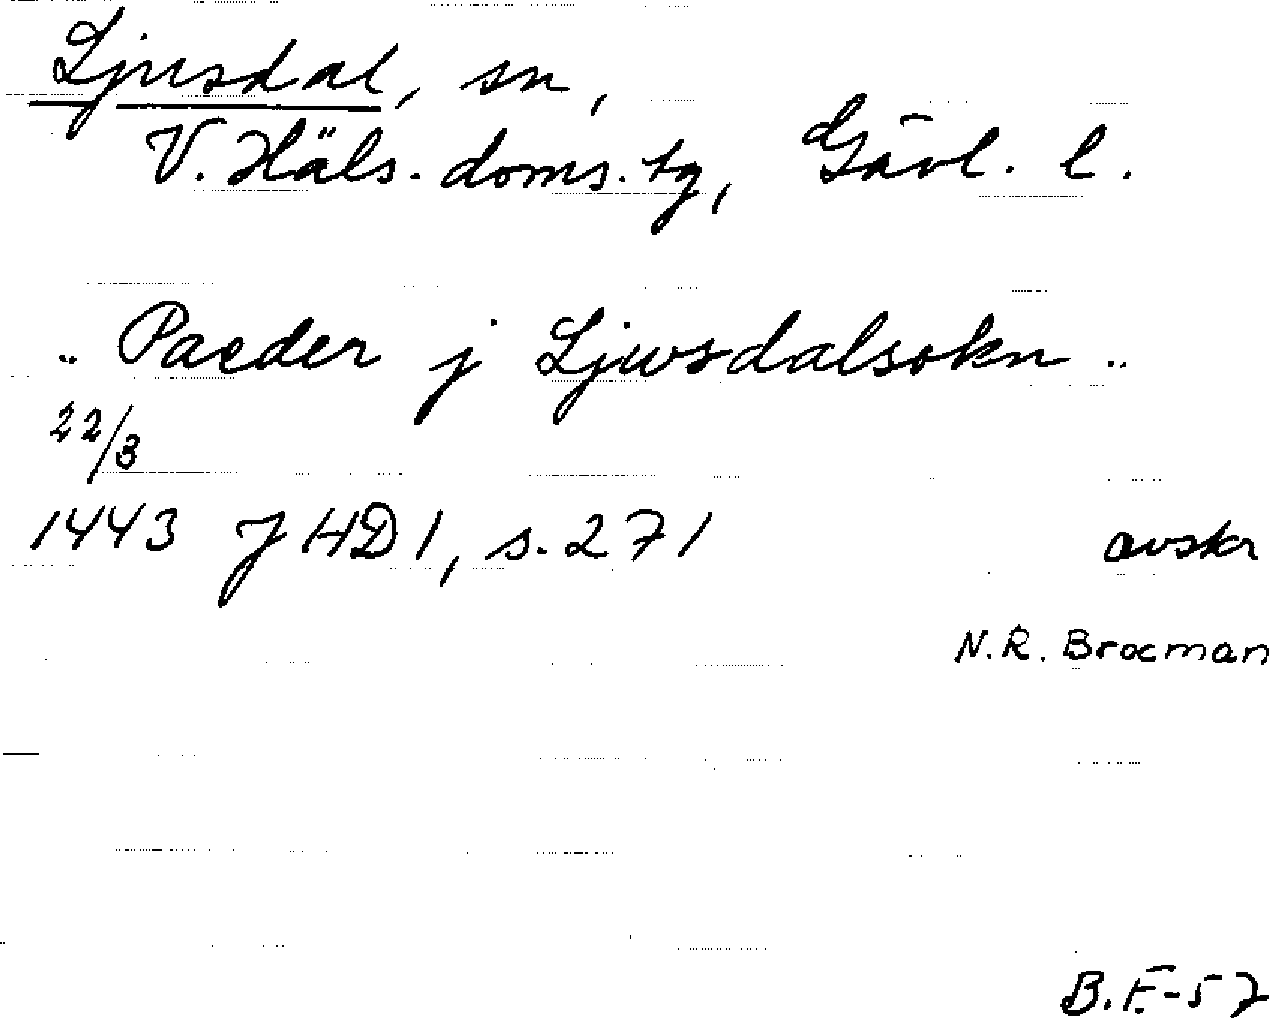 Ljusdal, sn,
V. Häls. doms. tg, Gävl. l.
" Paeder j Ljwsdalsokn "
22/3
1443 JHD 1, s. 271 avskr
N.R. Brocman
B.F.-57